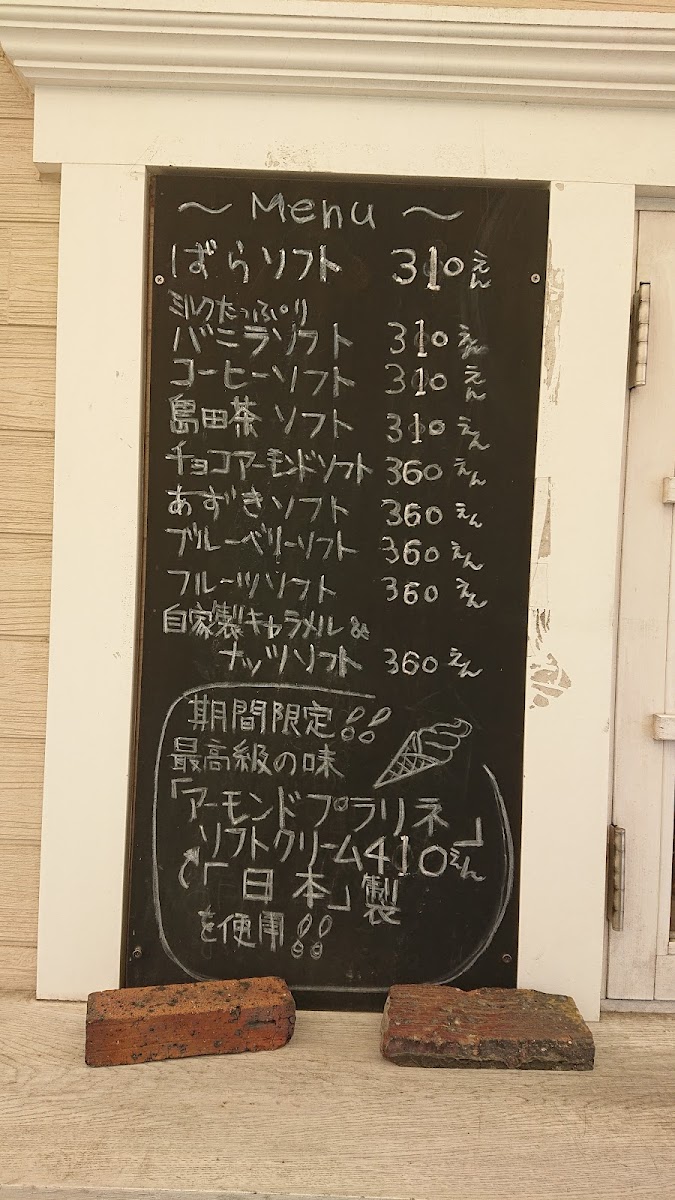 ～ Menu ～
ばらソフト 310えん
ミルクたっぷり
バニラソフト 310えん
コーヒーソフト 310えん
島田茶ソフト 310えん
チョコアーモンドソフト 360えん
あずきソフト 360えん
ブルーベリーソフト 360えん
フルーツソフト 360えん
自家製キャラメル&
ナッツソフト 360えん
期間限定!!
最高級の味
「アーモンドプラリネ」
ソフトクリーム410えん
「日本」製
を使用!!